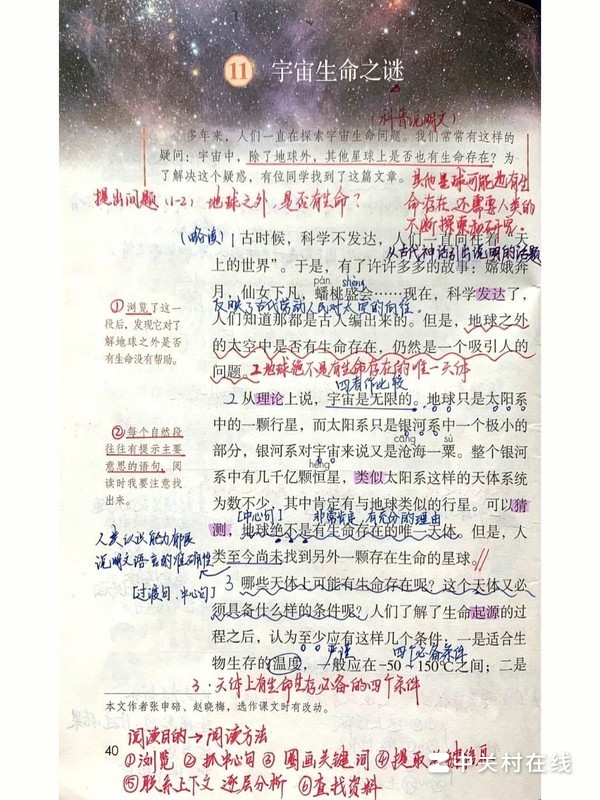 11 宇宙生命之谜
(科普说明文)
多年来，人们一直在探索宇宙生命问题。我们常常有这样的
疑问：宇宙中，除了地球外，其他星球上是否也有生命存在？为
了解决这个疑惑，有位同学找到了这篇文章。
其他星球可能也有生
命存在，还需要人类的
不断探索和研究。
提出问题(1-2) 地球之外，是否有生命？
(略读)
1 古时候，科学不发达，人们一直向往着“天
从古代神话引出说明的话题
上的世界”。于是，有了许许多多的故事：嫦娥奔
pán shèng
月，仙女下凡，蟠桃盛会……现在，科学发达了，
反映了古代劳动人民对太空的向往。
人们知道那都是古人编出来的。但是，地球之外
的太空中是否有生命存在，仍然是一个吸引人的
问题。
2地球绝不是有生命存在的唯一天体
①浏览了这一
段后，发现它对了
解地球之外是否
有生命没有帮助。
四者作比较
2 从理论上说，宇宙是无限的。地球只是太阳系
中的一颗行星，而太阳系只是银河系中一个极小的
cāng sù
部分，银河系对宇宙来说又是沧海一粟。整个银河
héng
系中有几千亿颗恒星，类似太阳系这样的天体系统
为数不少，其中肯定有与地球类似的行星。可以猜
[中心句] 非常肯定，有充分的理由
测，地球绝不是有生命存在的唯一天体。但是，人
类至今尚未找到另外一颗存在生命的星球。
②每个自然段
往往有提示主要
意思的语句，阅
读时我要注意找
出来。
人类认识能力有限
说明文语言的准确性
[过渡句、中心句]
3 哪些天体上可能有生命存在呢？这个天体又必
须具备什么样的条件呢？人们了解了生命起源的过
程之后，认为至少应有这样几个条件：一是适合生
严谨 四个必备条件
物生存的温度，一般应在-50~150℃之间；二是
3.天体上有生命生存必备的四个条件
本文作者张申碚、赵晓梅，选作课文时有改动。
40
阅读目的→阅读方法
①浏览 ②抓中心句 ③圈画关键词 ④提取关键信息
⑤联系上下文 逐层分析 ⑥查找资料
中关村在线